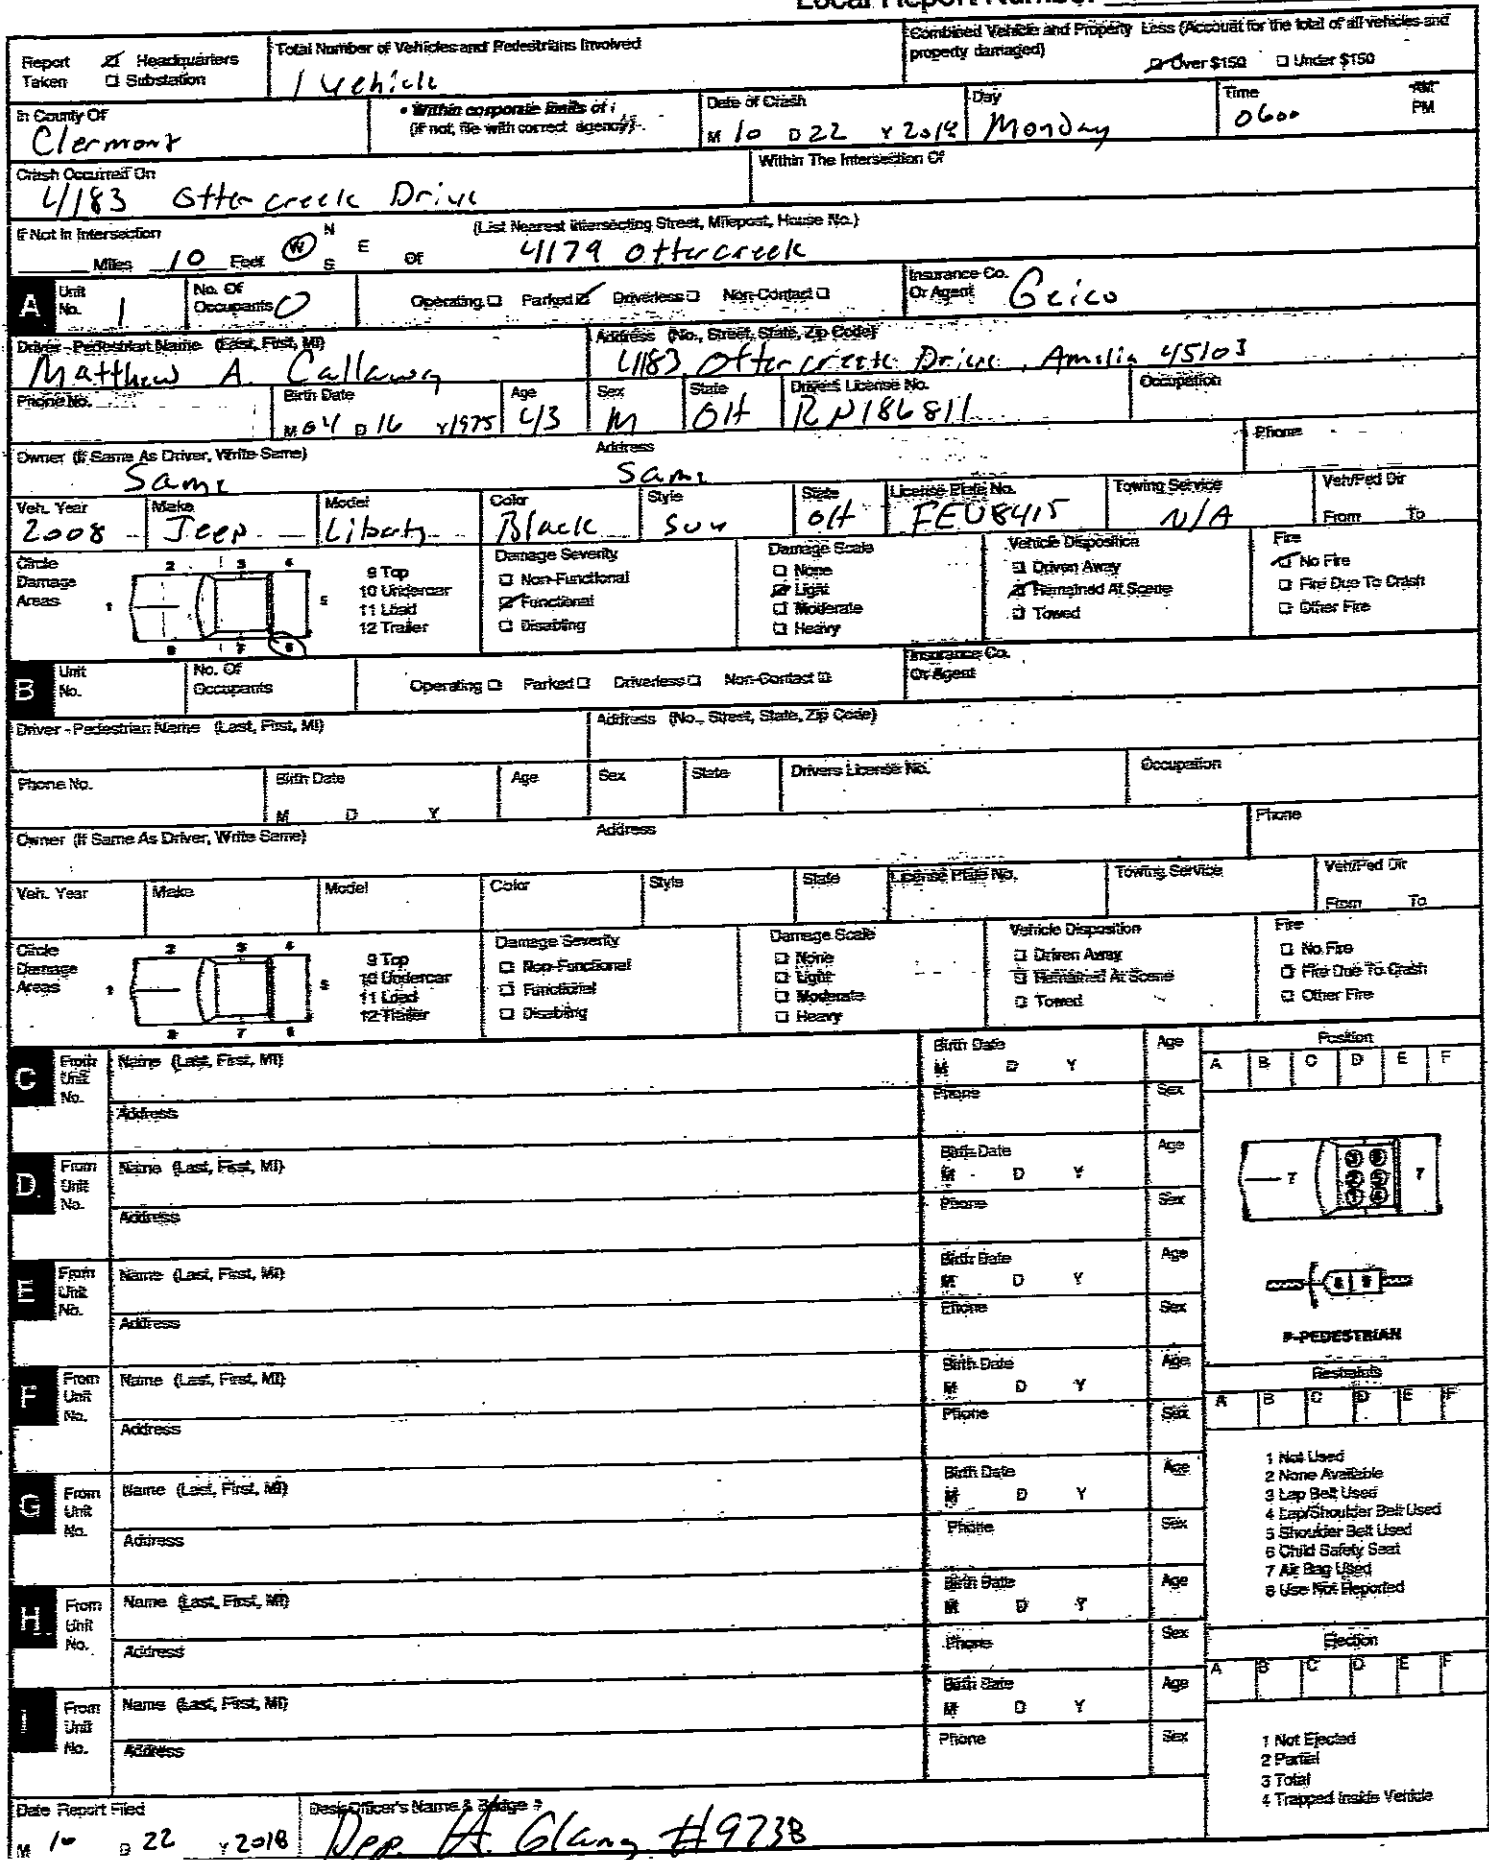 Local Report Number
Report Taken ☑ Headquarters ☐ Substation
Total Number of Vehicles and Pedestrians Involved
1 Vehicle
Combined Vehicle and Property Loss (Account for the total of all vehicles and property damaged)
☑ Over $150 ☐ Under $150
In County Of
Clermont
• Within corporate limits of:
(if not, file with correct agency)
Date of Crash
M 10 D 22 Y 2018
Day
Monday
Time
0600
AM
PM
Crash Occurred On
4183 Ottercreek Drive
Within The Intersection Of
If Not In Intersection
Miles 10 Feet N W E S Of
(List Nearest Intersecting Street, Milepost, House No.)
4179 Ottercreek
A
Unit No. 1
No. Of Occupants 0
Operating ☐ Parked ☑ Driverless ☐ Non-Contact ☐
Insurance Co. Or Agent Geico
Driver - Pedestrian Name (Last, First, MI)
Matthew A. Callaway
Address (No., Street, State, Zip Code)
4183 Ottercreek Drive, Amelia 45103
Phone No.
Birth Date
M 04 D 16 Y 1975
Age
43
Sex
M
State
OH
Drivers License No.
RN186811
Occupation
Owner (If Same As Driver, Write Same)
Same
Address
Same
Phone
Veh. Year
2008
Make
Jeep
Model
Liberty
Color
Black
Style
SUV
State
OH
License Plate No.
FEU8415
Towing Service
N/A
Veh/Ped Dir
From To
Circle Damage Areas
1 2 3 4 5 6 7 8
9 Top
10 Undercar
11 Load
12 Trailer
Damage Severity
☐ Non-Functional
☑ Functional
☐ Disabling
Damage Scale
☐ None
☑ Light
☐ Moderate
☐ Heavy
Vehicle Disposition
☐ Driven Away
☑ Remained At Scene
☐ Towed
Fire
☑ No Fire
☐ Fire Due To Crash
☐ Other Fire
B
Unit No.
No. Of Occupants
Operating ☐ Parked ☐ Driverless ☐ Non-Contact ☐
Insurance Co. Or Agent
Driver - Pedestrian Name (Last, First, MI)
Address (No., Street, State, Zip Code)
Phone No.
Birth Date
M D Y
Age
Sex
State
Drivers License No.
Occupation
Owner (If Same As Driver, Write Same)
Address
Phone
Veh. Year
Make
Model
Color
Style
State
License Plate No.
Towing Service
Veh/Ped Dir
From To
Circle Damage Areas
1 2 3 4 5 8 7 6
9 Top
10 Undercar
11 Load
12 Trailer
Damage Severity
☐ Non-Functional
☐ Functional
☐ Disabling
Damage Scale
☐ None
☐ Light
☐ Moderate
☐ Heavy
Vehicle Disposition
☐ Driven Away
☐ Remained At Scene
☐ Towed
Fire
☐ No Fire
☐ Fire Due To Crash
☐ Other Fire
C
From Unit No.
Name (Last, First, MI)
Address
Birth Date
M D Y
Phone
Age
Sex
Position
A B C D E F
D
From Unit No.
Name (Last, First, MI)
Address
Birth Date
M D Y
Phone
Age
Sex
7 7
E
From Unit No.
Name (Last, First, MI)
Address
Birth Date
M D Y
Phone
Age
Sex
P-PEDESTRIAN
F
From Unit No.
Name (Last, First, MI)
Address
Birth Date
M D Y
Phone
Age
Sex
Restraints
A B C D E F
1 Not Used
2 None Available
3 Lap Belt Used
4 Lap/Shoulder Belt Used
5 Shoulder Belt Used
6 Child Safety Seat
7 Air Bag Used
8 Use Not Reported
G
From Unit No.
Name (Last, First, MI)
Address
Birth Date
M D Y
Phone
Age
Sex
H
From Unit No.
Name (Last, First, MI)
Address
Birth Date
M D Y
Phone
Age
Sex
Ejection
A B C D E F
I
From Unit No.
Name (Last, First, MI)
Address
Birth Date
M D Y
Phone
Age
Sex
1 Not Ejected
2 Partial
3 Total
4 Trapped Inside Vehicle
Date Report Filed
M 10 D 22 Y 2018
Desk Officer's Name & Badge #
Dep. H.